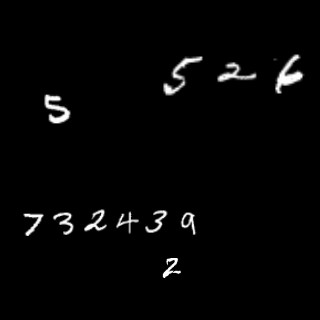 526
5
732439
2